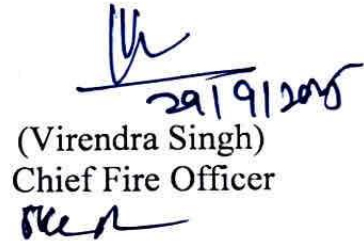 29/9/2025
(Virendra Singh)
Chief Fire Officer